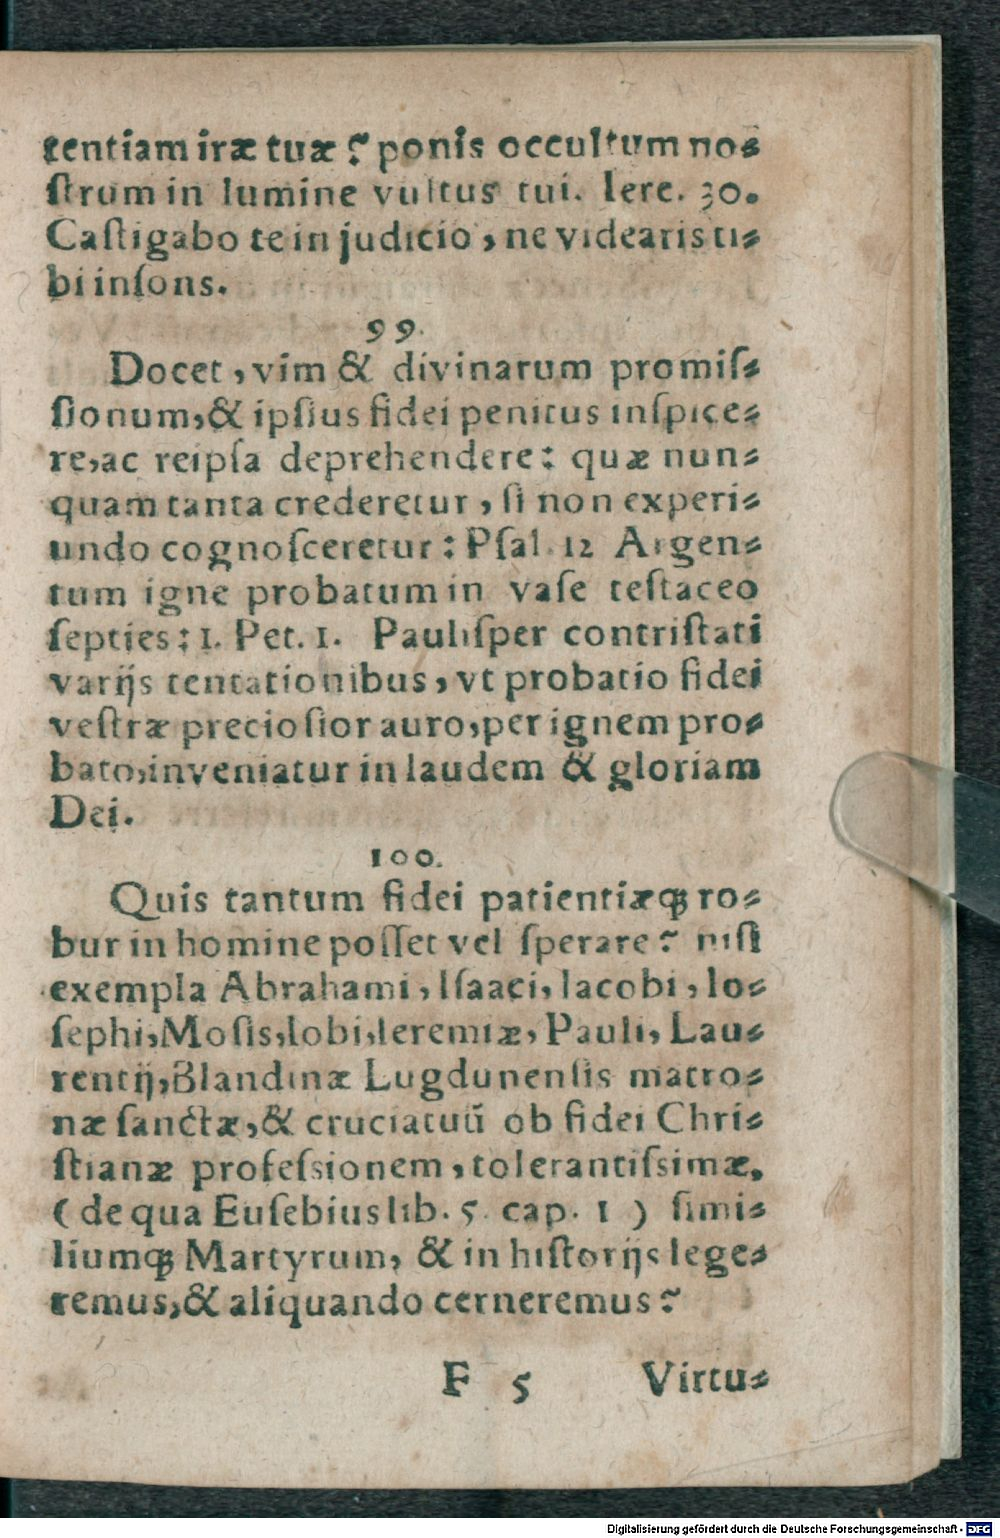 tentiam iræ tuæ? ponis occultum no⸗
ſtrum in lumine vultus tui. Iere. 30.
Caſtigabo te in judicio, ne videaris ti⸗
bi inſons.
99.
Docet, vim & divinarum promiſ⸗
ſionum, & ipſius fidei penitus inſpice⸗
re, ac reipſa deprehendere: quæ nun⸗
quam tanta crederetur, ſi non experi⸗
undo cognoſceretur: Pſal. 12 Argen⸗
tum igne probatum in vaſe teſtaceo
ſepties: 1. Pet. 1. Pauliſper contriſtati
varijs tentationibus, vt probatio fidei
veſtræ precioſior auro, per ignem pro⸗
bato, inveniatur in laudem & gloriam
Dei.
100.
Quis tantum fidei patientiæq́; ro⸗
bur in homine poſſet vel ſperare? niſi
exempla Abrahami, Iſaaci, Iacobi, Io⸗
ſephi, Moſis, Iobi, Ieremiæ, Pauli, Lau⸗
rentij, Blandinæ Lugdunenſis matro⸗
næ ſanctæ, & cruciatuū ob fidei Chri⸗
ſtianæ profeſsionem, tolerantiſsimæ,
(de qua Euſebius lib. 5. cap. 1) ſimi⸗
liumq́; Martyrum, & in hiſtorijs lege⸗
remus, & aliquando cerneremus?
F 5 Virtu⸗
Digitalisierung gefördert durch die Deutsche Forschungsgemeinschaft - DFG